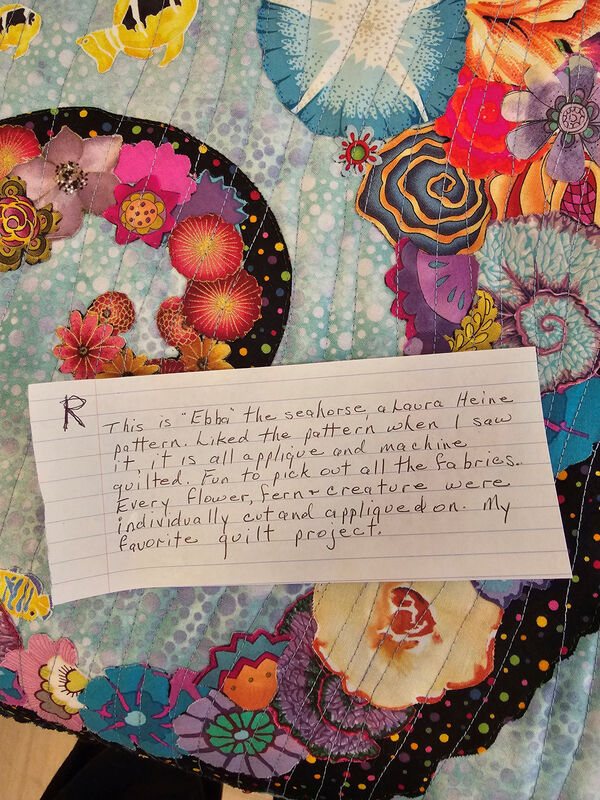 R
This is "Ebba" the seahorse, a Laura Heine
pattern. Liked the pattern when I saw
it, it is all applique and machine
quilted. Fun to pick out all the fabrics.
Every flower, fern & creature were
individually cut and appliqued on. My
favorite quilt project.